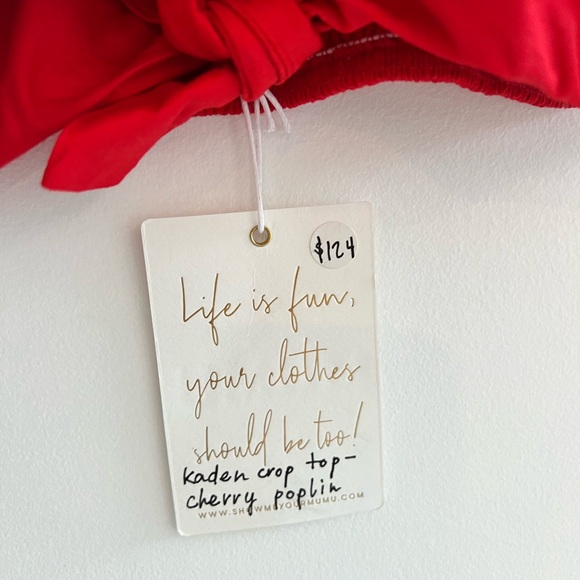 $124
Life is fun,
your clothes
should be too!
kaden crop top-
cherry poplin
WWW.SHOWMEYOURMUMU.COM